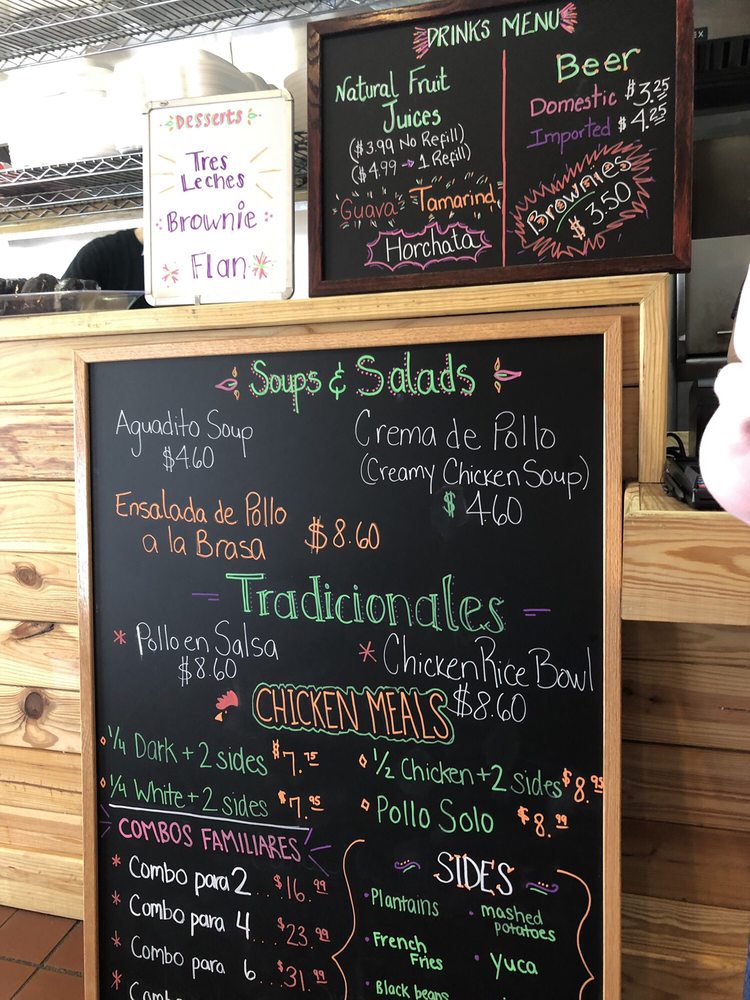 Desserts
Tres
Leches
Brownie
Flan
DRINKS MENU
Natural Fruit
Juices
($3.99 No Refill)
($4.99 → 1 Refill)
Guava Tamarind
Horchata
Beer
Domestic $3.25
Imported $4.25
Brownies
$3.50
Soups & Salads
Aguadito Soup
$4.60
Crema de Pollo
(Creamy Chicken Soup)
$4.60
Ensalada de Pollo
a la Brasa $8.60
Tradicionales
* Pollo en Salsa
$8.60
* Chicken Rice Bowl
$8.60
CHICKEN MEALS
1/4 Dark + 2 sides $7.75
1/4 White + 2 sides $7.95
1/2 Chicken + 2 sides $8.95
Pollo Solo $8.99
COMBOS FAMILIARES
* Combo para 2...$16.99
* Combo para 4....$23.99
* Combo para 6...$31.99
* Combo
SIDES
• Plantains
• French
Fries
• Black beans
• mashed
potatoes
• Yuca